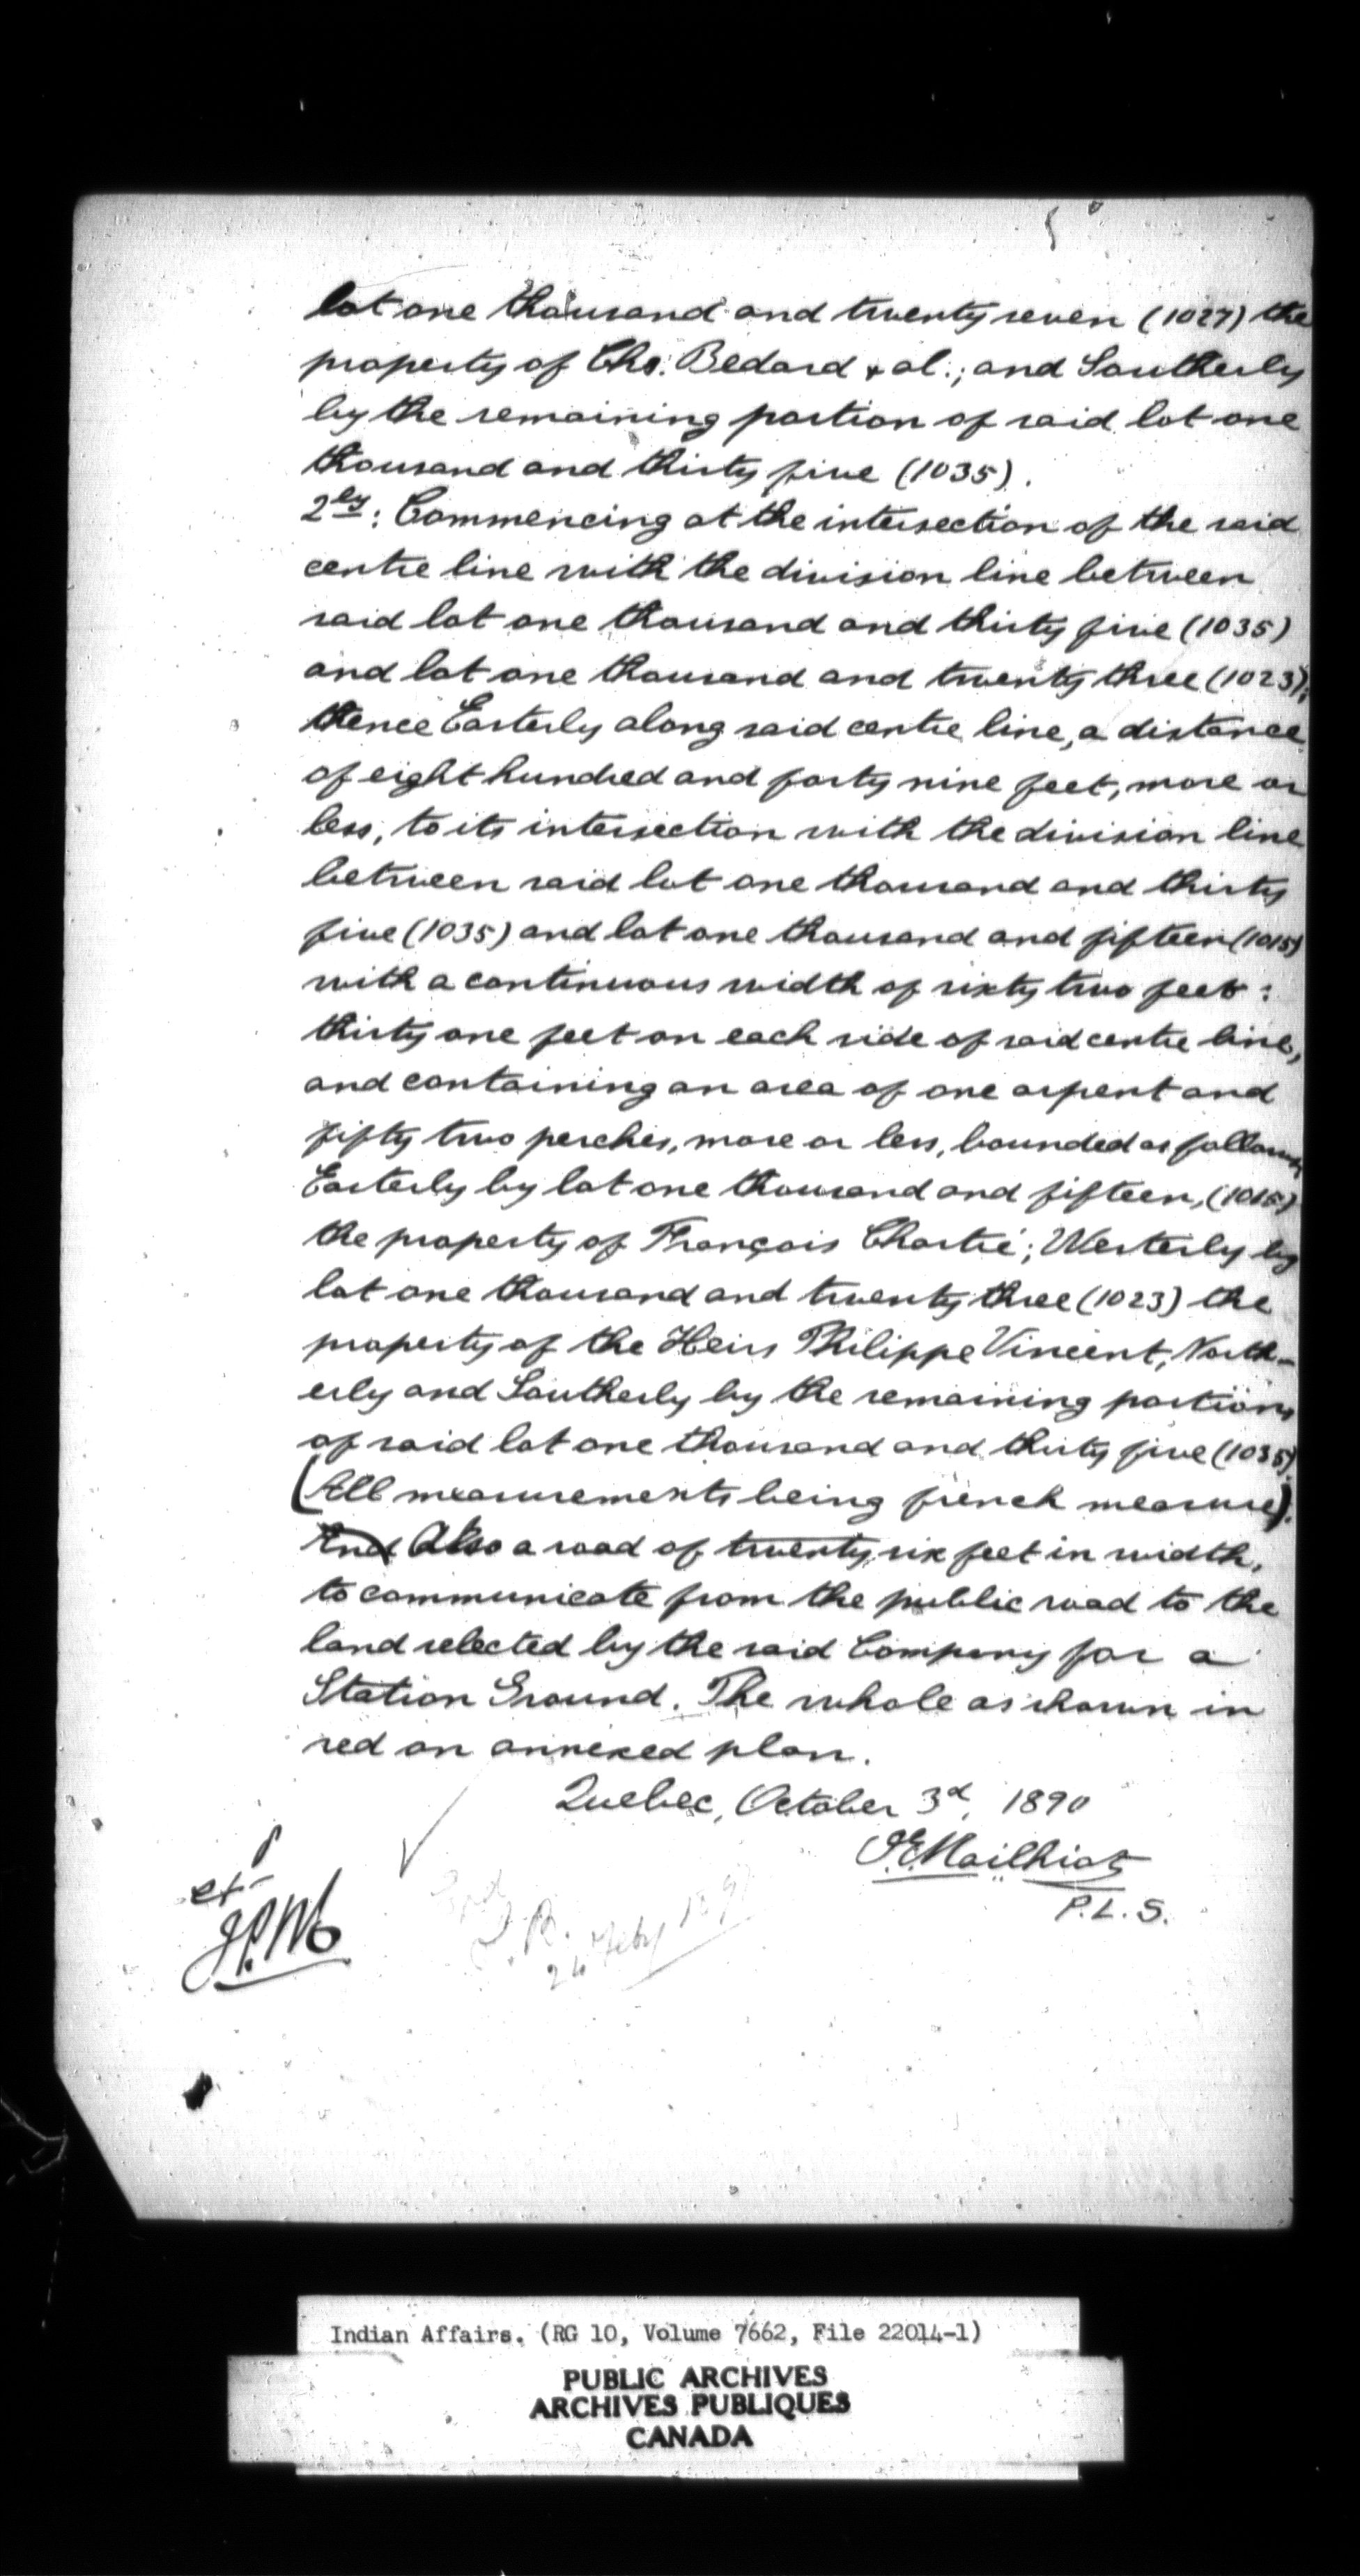 lot one thousand and twenty seven (1027) the
property of Chs. Bedard & al.; and Southerly
by the remaining portion of said lot one
thousand and thirty five (1035).
2ly: Commencing at the intersection of the said
centre line with the division line between
said lot one thousand and thirty five (1035)
and lot one thousand and twenty three (1023);
thence Easterly along said centre line, a distance
of eight hundred and forty nine feet, more or
less, to its intersection with the division line
between said lot one thousand and thirty
five (1035) and lot one thousand and fifteen (1015)
with a continuous width of sixty two feet:
thirty one feet on each side of said centre line,
and containing an area of one arpent and
fifty two perches, more or less, bounded as follows,
Easterly by lot one thousand and fifteen, (1015)
the property of François Chartié; Westerly by
lot one thousand and twenty three (1023) the
property of the Heirs Philippe Vincent, North-
erly and Southerly by the remaining portions
of said lot one thousand and thirty five (1035).
(All measurements being french measure).
And Also a road of twenty six feet in width,
to communicate from the public road to the
land selected by the said Company for a
Station Ground. The whole as shown in
red on annexed plan.
Quebec, October 3d, 1890
J.E. Mailhiot
P.L.S.
24 Feby
Indian Affairs. (RG 10, Volume 7662, File 22014-1)
PUBLIC ARCHIVES
ARCHIVES PUBLIQUES
CANADA